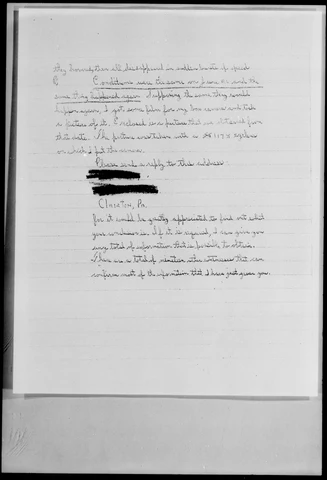 they hovered then all disappeared in sudden bursts of speed.
Conditions were the same on June 21 and the
same thing happened again. Supposing the same they would
happen again, I got some film for my box camera and took
a picture of it. I enclosed one picture that was obtained from
that date. The picture was taken with a
on which I put the camera.
Please send a reply to this address:
Clairton, Pa.
for it would be greatly appreciated to find out what
your conclusion is. If it is required, I can give you
any total of information that is possible to obtain.
There are a total of nineteen witnesses that can
confirm most of the information that I have just given you.